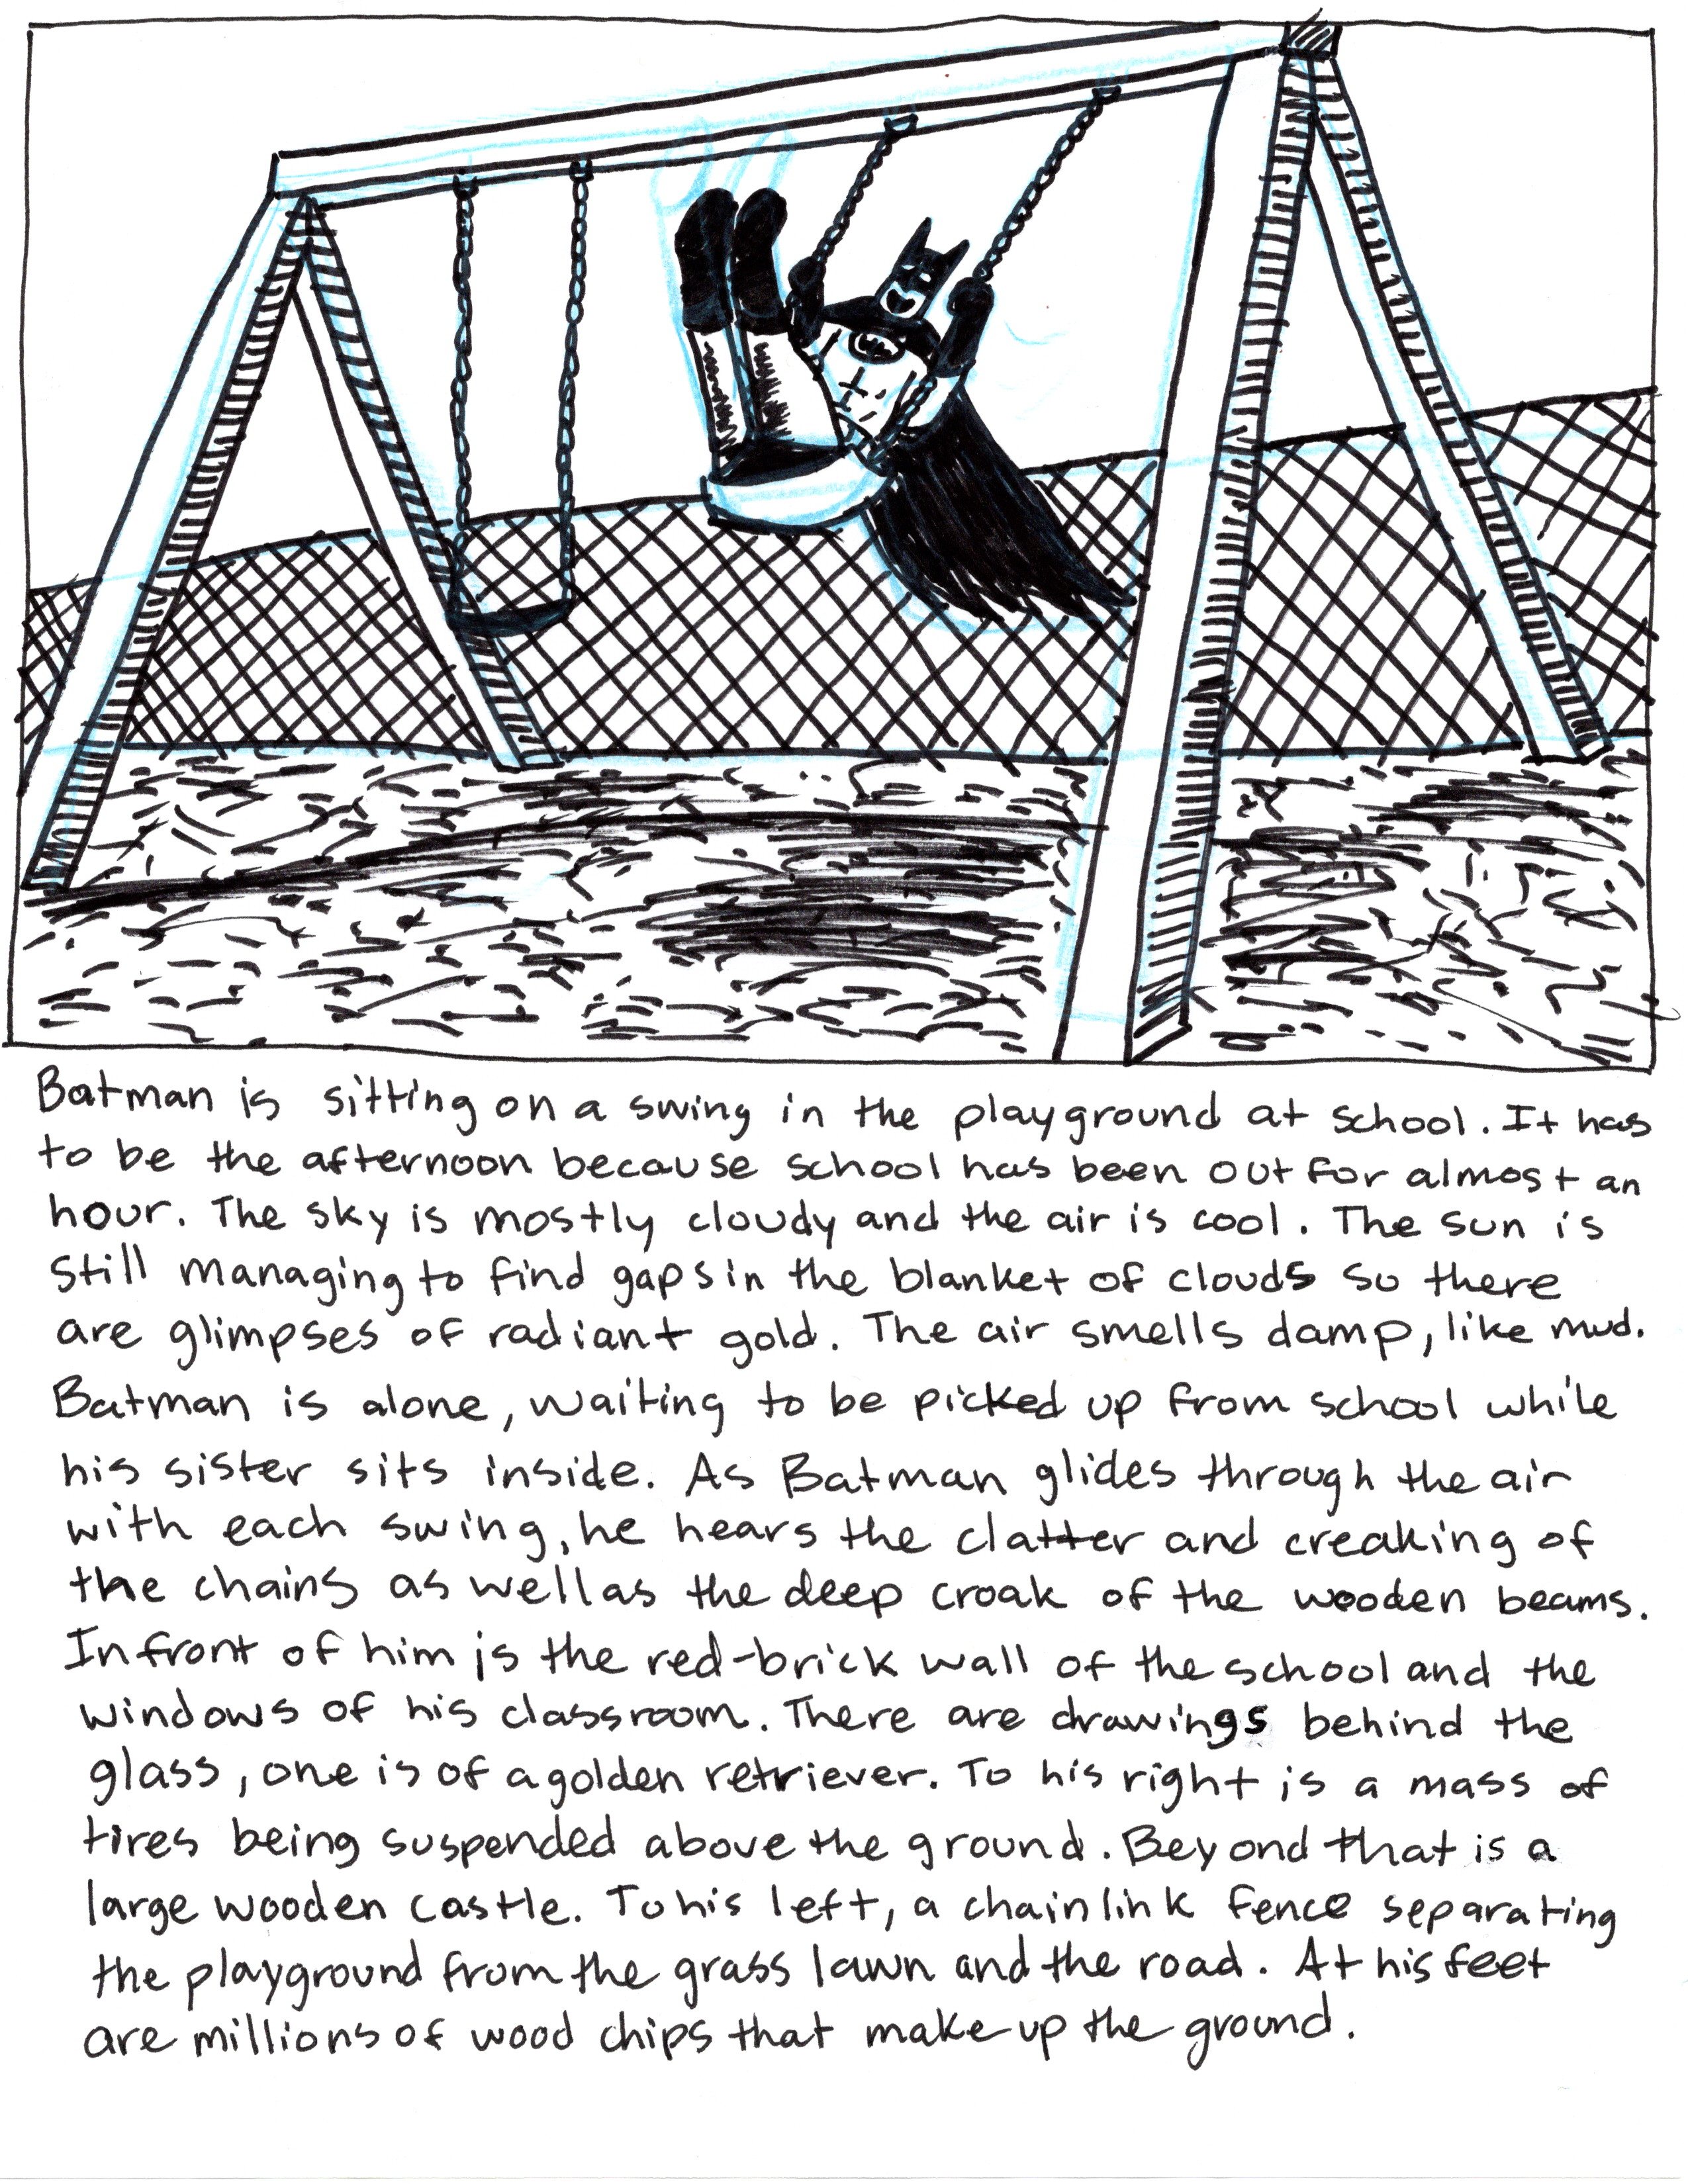 Batman is sitting on a swing in the playground at school. It has
to be the afternoon because school has been out for almost an
hour. The sky is mostly cloudy and the air is cool. The sun is
still managing to find gaps in the blanket of clouds so there
are glimpses of radiant gold. The air smells damp, like mud.
Batman is alone, waiting to be picked up from school while
his sister sits inside. As Batman glides through the air
with each swing, he hears the clatter and creaking of
the chains as well as the deep croak of the wooden beams.
In front of him is the red-brick wall of the school and the
windows of his classroom. There are drawings behind the
glass, one is of a golden retriever. To his right is a mass of
tires being suspended above the ground. Beyond that is a
large wooden castle. To his left, a chain link fence separating
the playground from the grass lawn and the road. At his feet
are millions of wood chips that make up the ground.